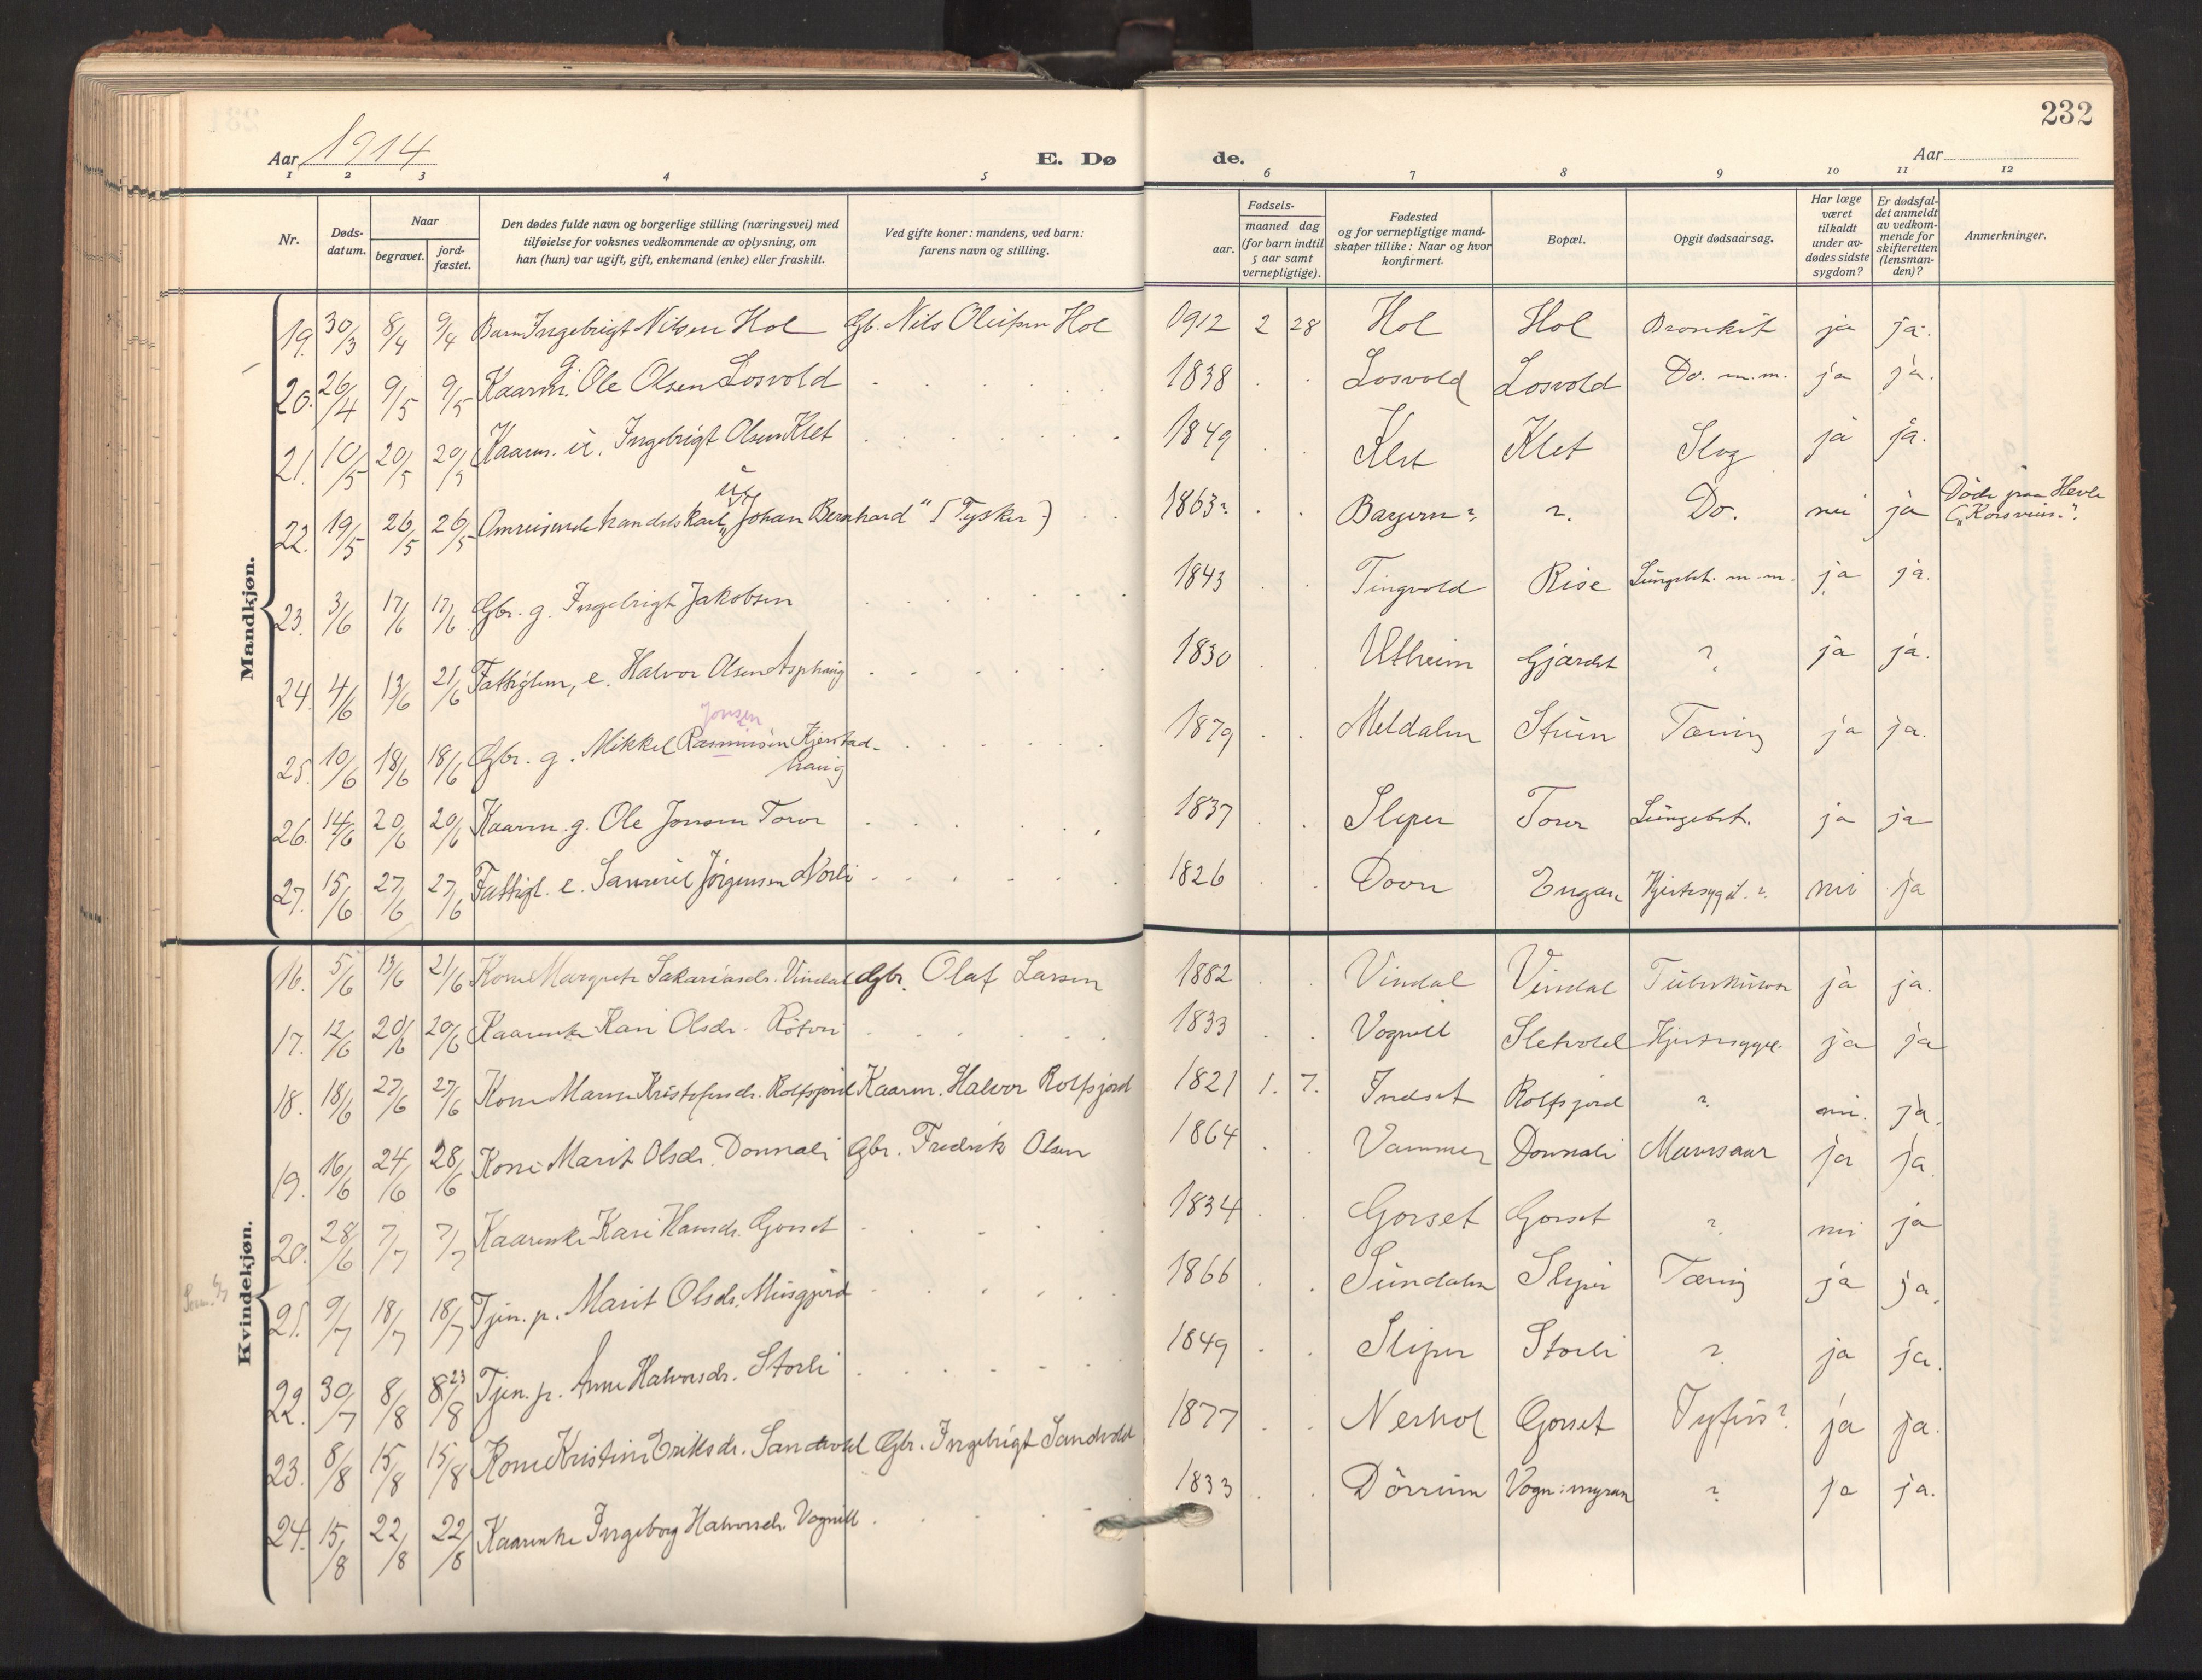 232
Aar 1914
E. Dø
de.
Aar
1 2 3 4 5 6 7 8 9 10 11 12
Nr.
Døds-
datum.
Naar
begravet.
jord-
fæstet.
Den dødes fulde navn og borgerlige stilling (næringsvei) med
tilføielse for voksnes vedkommende av oplysning, om
han (hun) var ugift, gift, enkemand (enke) eller fraskilt.
Ved gifte koner: mandens, ved barn:
farens navn og stilling.
Fødsels-
aar.
maaned dag
(for barn indtil
5 aar samt
vernepligtige).
Fødested
og for vernepligtige mand-
skaper tillike: Naar og hvor
konfirmert.
Bopæl.
Opgit dødsaarsag.
Har læge
været
tilkaldt
under av-
dødes sidste
sygdom?
Er dødsfal-
det anmeldt
av vedkom-
mende for
skifteretten
(lensman-
den)?
Anmerkninger.
Mandkjøn.
19. 30/3 8/4 9/4 Barn Ingebrigt Nilsen Hol Gb. Nils Oleifsen Hol 0912 2 28 Hol Hol Bronkit ja ja.
20. 26/4 9/5 9/5 Kaarm. g. Ole Olsen Losvold 1838 Losvold Losvold Do. m.m. ja ja.
21. 10/5 20/5 20/5 Kaarm. u. Ingebrigt Olsen Klet 1849 Klet Klet Slag ja ja.
22. 19/5 26/5 26/5 Omreisende handelskarl u. "Johan Bernhard" (Tysker) 1863? Bayern? ?. Do. nei ja Döde paa Hevle
("Korsveien".
23. 3/6 17/6 17/6 Gbr. g. Ingebrigt Jakobsen 1843 Tingvold Rise Lungebet. m.m. ja ja.
24. 4/6 13/6 21/6 Fattiglem, e. Halvor Olsen Asphaug 1830 Utheim Gjærdet ? ja ja.
Jonsen
25. 10/6 18/6 18/6 Gbr. g. Mikkel Rasmussen Kjerstad-
haug 1879 Meldalen Stuen Tæring ja ja.
26. 14/6 20/6 20/6 Kaarm. g. Ole Jonsen Torve 1837 Sliper Torve Lungebet. ja ja
27. 15/6 27/6 27/6 Fattigl. e. Samuel Jörgensen Norli 1826 Dovre Engan Hjertesygd. ?. nei ja
Kvindekjøn.
16. 5/6 13/6 21/6 Kone Margrete Sakariasdr. Vindal Gbr. Olaf Larsen 1882 Vindal Vindal Tuberkulose ja ja.
17. 12/6 20/6 20/6 Kaarenke Kari Olsdr. Rötvei 1833 Vognill Sletvold Hjertesygd. ja ja
18. 18/6 27/6 27/6 Kone Maren Kristofersdr. Rolfsjord Kaarm. Halvor Rolfsjord 1821 1. 7. Indset Rolfsjord ? nei. ja.
19. 16/6 24/6 28/6 Kone Marit Olsdr. Donnali Gbr. Fredrik Olsen 1864 Vammer Donnali Mavesaar ja ja.
20. 28/6 7/7 7/7 Kaarenke Kari Hansdr. Gorset 1834 Gorset Gorset ? nei ja
21. 9/7 18/7 18/7 Tjen. p. Marit Olsdr. Musgjerd 1866 Sundalen Sliper Tæring ja ja.
22. 30/7 8/8 8/8 23 Tjen. p. Anne Halvorsdr. Storli 1849 Sliper Storli ? ja ja.
23. 8/8 15/8 15/8 Kone Kristine Eriksdr. Sandvold Gbr. Ingebrigt Sandvold 1877 Nerhol Gorset Tyfus? ja ja.
24. 15/8 22/8 22/8 Kaarenke Ingeborg Halvorsdr. Vognill 1833 Dörreim Vogn:myran ? ja ja.